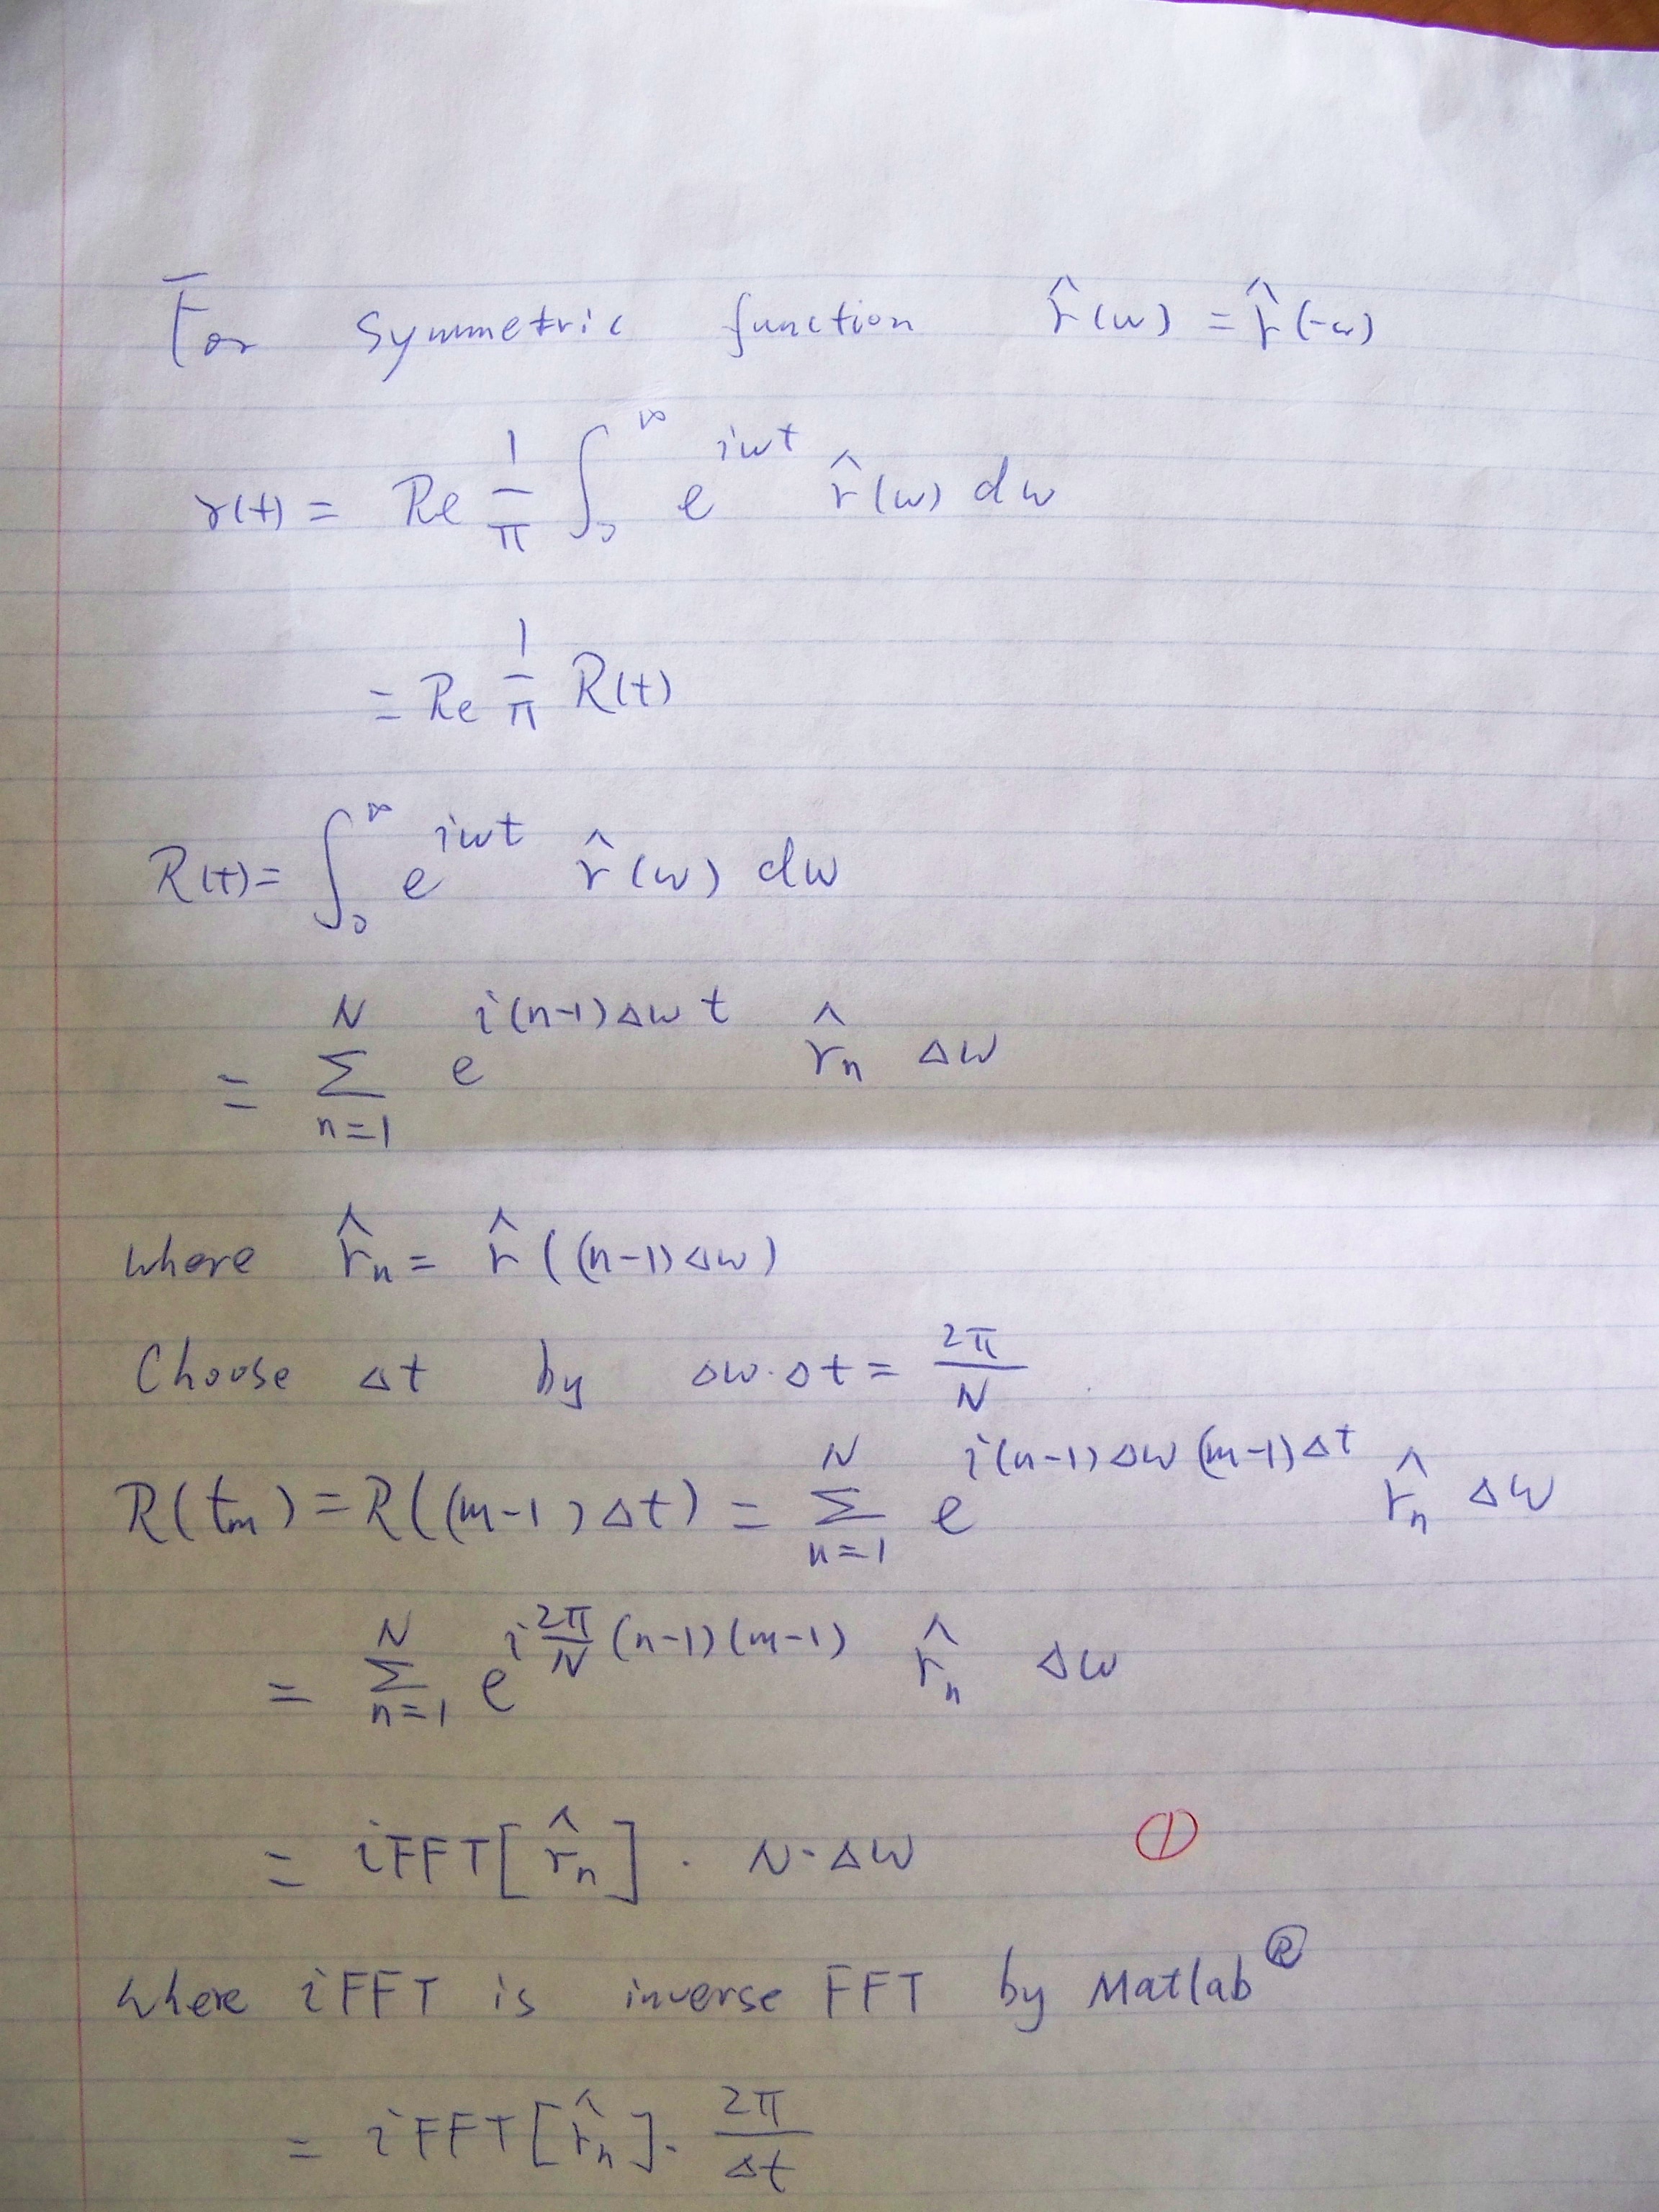 For symmetric function r̂(ω) = r̂(-ω)
r(t) = Re 1/π ∫₀^∞ e^{iωt} r̂(ω) dω
= Re 1/π R(t)
R(t) = ∫₀^∞ e^{iωt} r̂(ω) dω
= Σ_{n=1}^{N} e^{i(n-1)Δω t} r̂ₙ Δω
where r̂ₙ = r̂((n-1)Δω)
Choose Δt by Δω·Δt = 2π/N
R(tₘ) = R((m-1)Δt) = Σ_{n=1}^{N} e^{i(n-1)Δω(m-1)Δt} r̂ₙ Δω
= Σ_{n=1}^{N} e^{i 2π/N (n-1)(m-1)} r̂ₙ Δω
= iFFT[r̂ₙ] · N·Δω ①
where iFFT is inverse FFT by Matlab®
= iFFT[r̂ₙ]· 2π/Δt